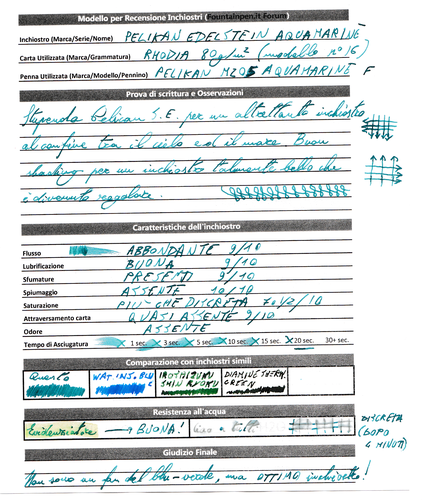 Modello per Recensione Inchiostri (Fountainpen.it Forum)
Inchiostro (Marca/Serie/Nome) PELIKAN EDELSTEIN AQUAMARINE
Carta Utilizzata (Marca/Grammatura) RHODIA 80g/m² (modello n°16)
Penna Utilizzata (Marca/Modello/Pennino) PELIKAN M205 AQUAMARINE F
Prova di scrittura e Osservazioni
Stupenda Pelican S.E. per un altrettanto inchiostro
al confine tra il cielo ed il mare. Buon
shading per un inchiostro talmente bello che
è divenuto regolare.
Caratteristiche dell'inchiostro
Flusso ABBONDANTE 9/10
Lubrificazione BUONA 9/10
Sfumature PRESENTI 9/10
Spiumaggio ASSENTE 10/10
Saturazione PIU' CHE DISCRETA 7 1/2 /10
Attraversamento carta QUASI ASSENTE 9/10
Odore ASSENTE
Tempo di Asciugatura 1 sec. 3 sec. 5 sec. 10 sec. 15 sec. 20 sec. 30+ sec.
Comparazione con inchiostri simili
Questo WAT INS. BLUE IROSHIZUKU SHIN RYOKU DIAMINE SHERW. GREEN
Resistenza all'acqua
Evidenziatore BUONA! DISCRETA (DOPO 4 MINUTI)
Giudizio Finale
Non sono un fan del blu-verde, ma OTTIMO inchiostro!